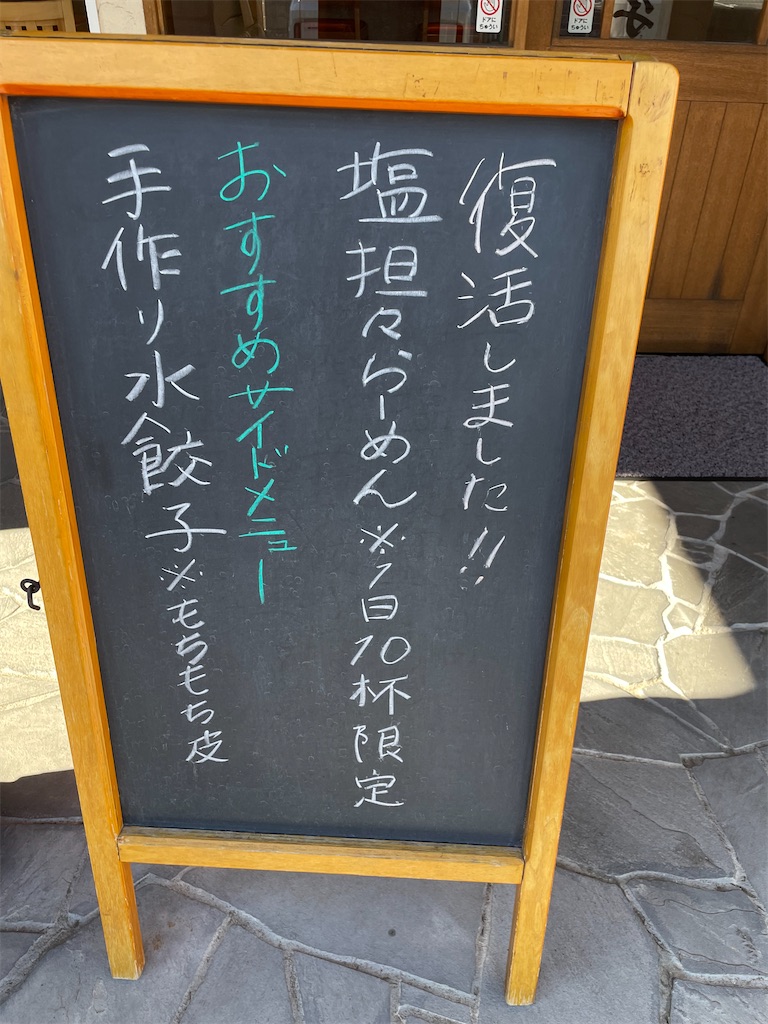 復活しました!!
塩担々らーめん※1日10杯限定
おすすめサイドメニュー
手作り水餃子※もちもち皮
ドアに
ちゅうい
ドアに
ちゅうい